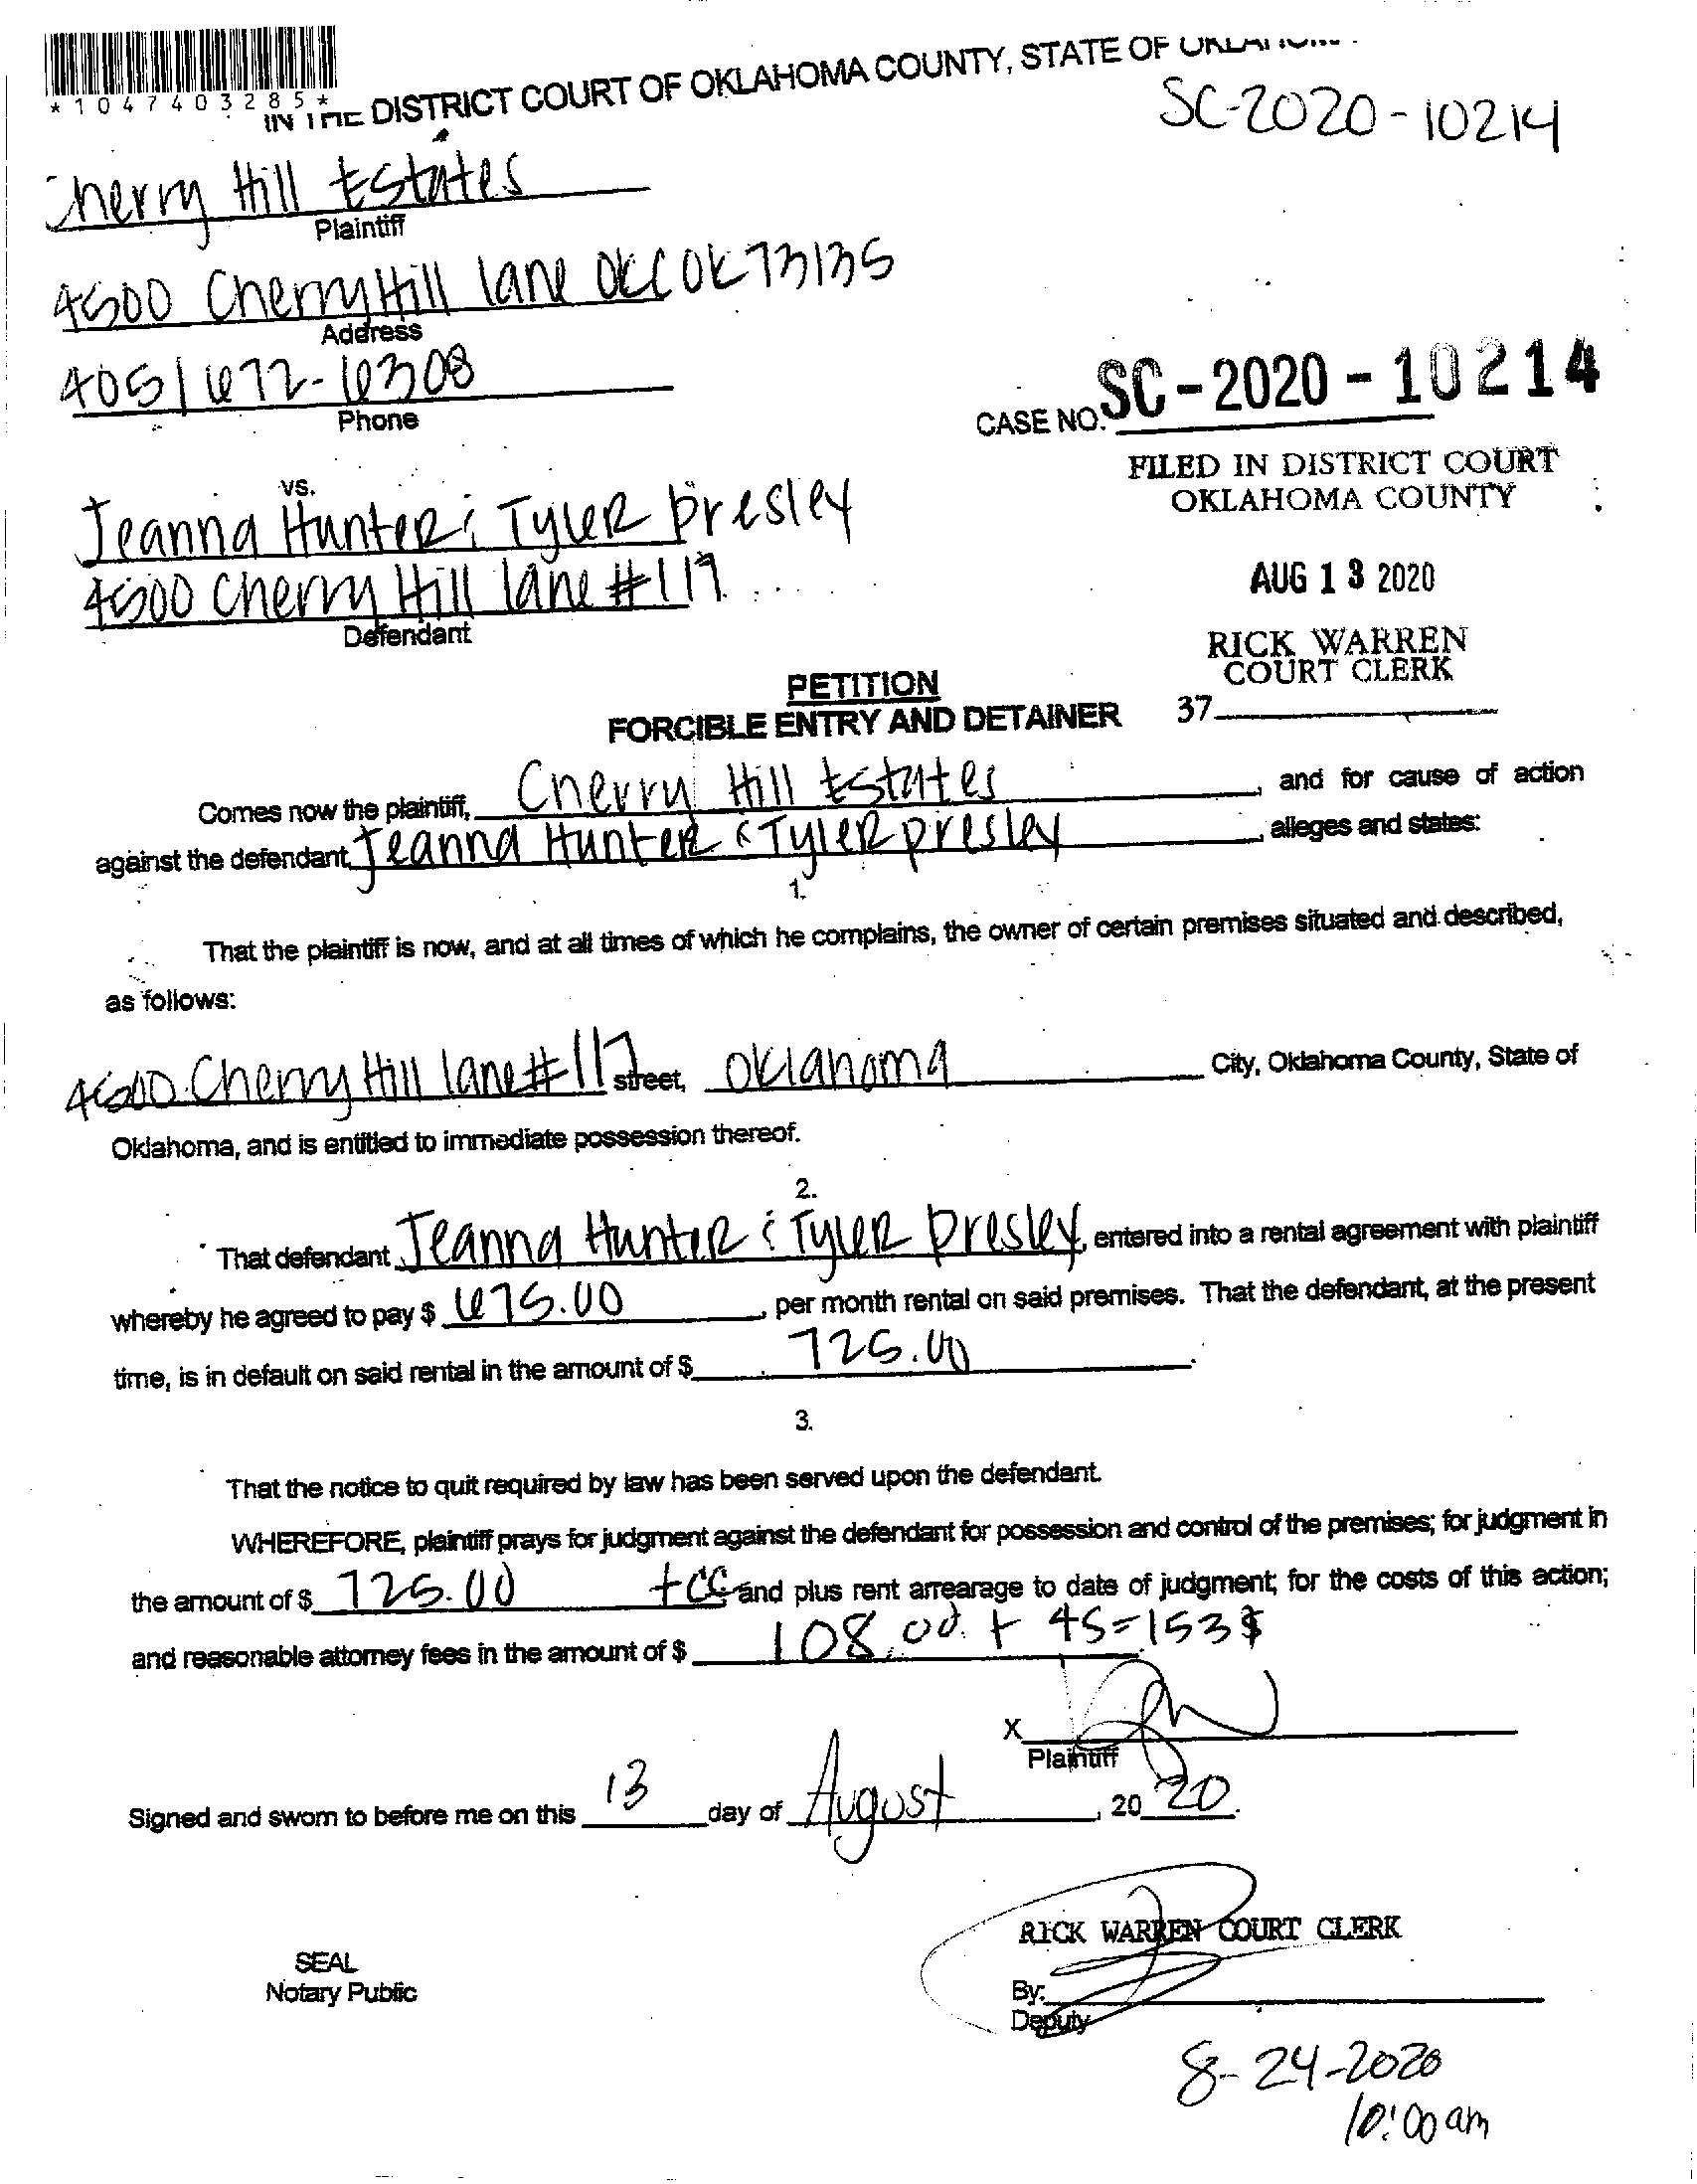 *1047403285*
IN THE DISTRICT COURT OF OKLAHOMA COUNTY, STATE OF
SC-2020-10214
Cherry Hill Estates
Plaintiff
4500 Cherry Hill lane OKC OK 73135
Address
405/672-6308
Phone
CASE NO. SC-2020-10214
FILED IN DISTRICT COURT
OKLAHOMA COUNTY
AUG 13 2020
RICK WARREN
COURT CLERK
37
vs.
Jeanna Hunter & Tyler Presley
4500 Cherry Hill lane #117
Defendant
PETITION
FORCIBLE ENTRY AND DETAINER
Comes now the plaintiff, Cherry Hill Estates, and for cause of action
against the defendant, Jeanna Hunter & Tyler presley, alleges and states:
1.
That the plaintiff is now, and at all times of which he complains, the owner of certain premises situated and described,
as follows:
4500 Cherry Hill lane #117 street, Oklahoma City, Oklahoma County, State of
Oklahoma, and is entitled to immediate possession thereof.
2.
That defendant Jeanna Hunter & Tyler Presley, entered into a rental agreement with plaintiff
whereby he agreed to pay $ 675.00, per month rental on said premises. That the defendant, at the present
time, is in default on said rental in the amount of $ 725.00
3.
That the notice to quit required by law has been served upon the defendant.
WHEREFORE, plaintiff prays for judgment against the defendant for possession and control of the premises; for judgment in
the amount of $ 725.00 +CC and plus rent arrearage to date of judgment; for the costs of this action;
and reasonable attorney fees in the amount of $ 108.00 + 45=153$
X
Plaintiff
Signed and sworn to before me on this 13 day of August, 20 20.
RICK WARREN COURT CLERK
SEAL
Notary Public
By:
Deputy
8-24-2020
10:00 am